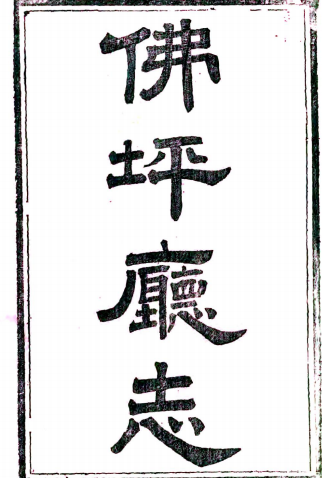 佛坪廳志